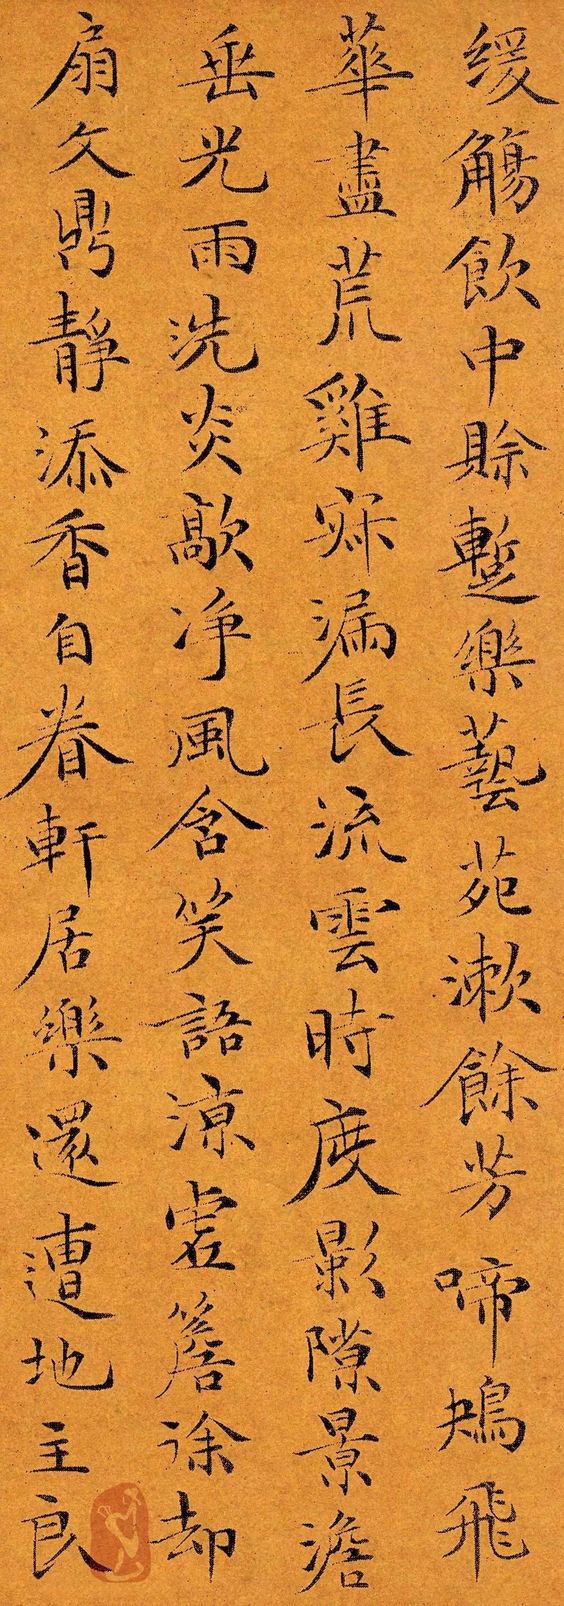 緩觴飲中賒蹔樂藝苑漱餘芳啼鴂飛
華盡荒雞寐漏長流雲時度影隙景澹
垂光雨洗炎歊净風含笑語涼虛簷徐却
扇久鼎靜添香自眷軒居樂還遭地主良